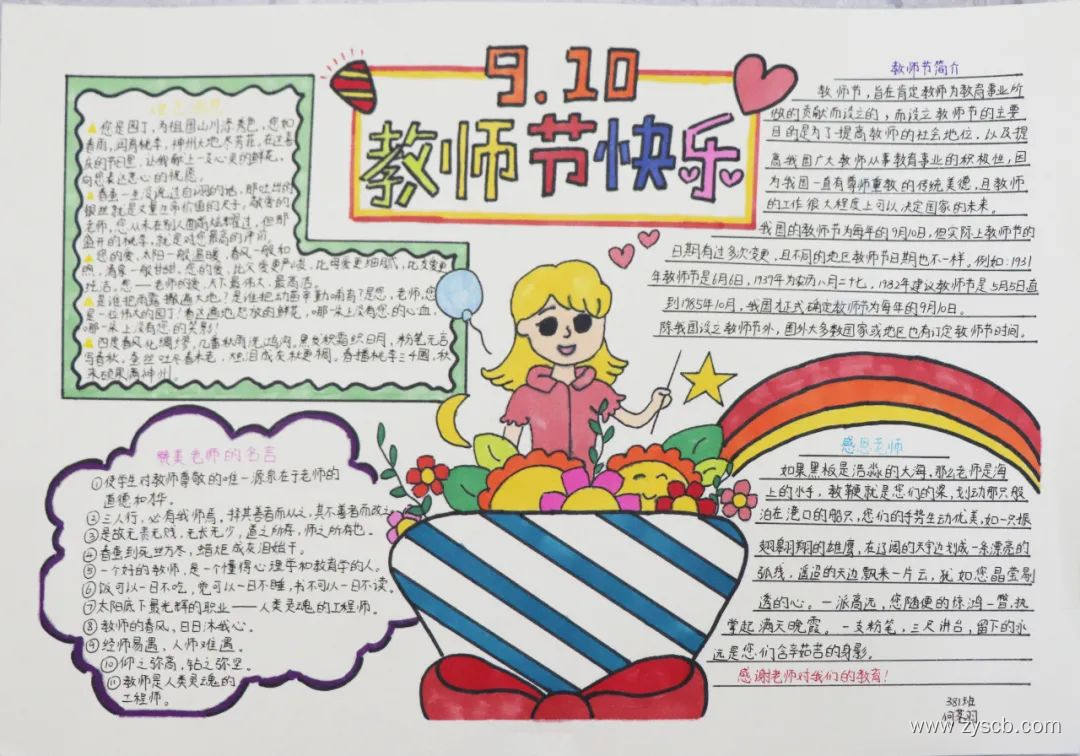 9.10
教师节快乐
▲您是园丁,为祖国山川添秀色,您如
春雨,润育桃李,神州大地尽芳菲,在这喜
庆的节日里,让我献上一支心灵的鲜花,
向您表达衷心的祝愿。
▲春蚕一生没说过自诩的话,那吐出的
银丝就是丈量生命价值的尺子,敬爱的
老师,您从未在别人面前炫耀过,但那
盛开的桃李,就是对您最高的评价。
▲您的爱,太阳一般温暖,春风一般和
煦,清泉一般甘甜,您的爱,比父爱更严峻,比母爱更细腻,比友爱更
纯洁。您——老师的爱,天下最伟大,最高洁。
▲是谁把雨露撒遍大地?是谁把幼苗辛勤哺育?是您,老师,您
是一位伟大的园丁!看这遍地怒放的鲜花,哪一朵上没有您的心血,
哪一朵上没有您的笑影!
▲四度春风化绸缪,几番秋雨洗鸿沟。黑发积霜织日月,粉笔无言
写春秋,蚕丝吐尽春未老,烛泪成灰秋更稠。春播桃李三千圃,秋
来硕果满神州。
赞美老师的名言
①使学生对教师尊敬的唯一源泉在于老师的
道德和才华。
②三人行,必有我师焉。择其善者而从之,其不善者而改之。
③是故无贵无贱,无长无少,道之所存,师之所存也。
④春蚕到死丝方尽,蜡炬成灰泪始干。
⑤一个好的教师,是一个懂得心理学和教育学的人。
⑥饭可以一日不吃,觉可以一日不睡,书不可以一日不读。
⑦太阳底下最光辉的职业——人类灵魂的工程师。
⑧教师的春风,日日沐我心。
⑨经师易遇,人师难遇。
⑩仰之弥高,钻之弥坚。
⑪教师是人类灵魂的
工程师。
教师节简介
教师节,旨在肯定教师为教育事业所
做的贡献而设立的,而设立教师节的主要
目的是为了提高教师的社会地位,以及提
高我国广大教师从事教育事业的积极性,因
为我国一直有尊师重教的传统美德,且教师
的工作很大程度上可以决定国家的未来。
我国的教师节为每年的9月10日,但实际上教师节的
日期有过多次变更,且不同的地区教师节日期也不一样。例如:1931
年教师节是6月6日,1939年为农历八月二十七,1982年建议教师节是5月5日直
到1985年10月,我国才正式确定教师节为每年的9月10日。
除我国设立教师节外,国外大多数国家或地区也有订定教师节时间。
感恩老师
如果黑板是浩淼的大海,那么老师是海
上的水手,教鞭就是您们的桨,划动那只船
泊在港口的船只,您们的手势生动优美,如一只振
翅翱翔的雄鹰,在辽阔的天宇边划成一条漂亮的
弧线,遥远的天边飘来一片云,犹如您晶莹剔
透的心。一派高远,您随便的惊鸿一瞥,执
掌起满天晚霞。一支粉笔,三尺讲台,留下的永
远是您们含辛茹苦的身影。
感谢老师对我们的教育!
381班
www.zyscb.com